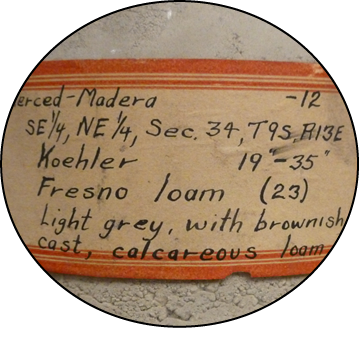 erced-Madera -12
SE 1/4, NE 1/4, Sec. 34, T9S, R13E
Koehler 19"-35"
Fresno loam (23)
Light grey, with brownish
cast, calcareous loam